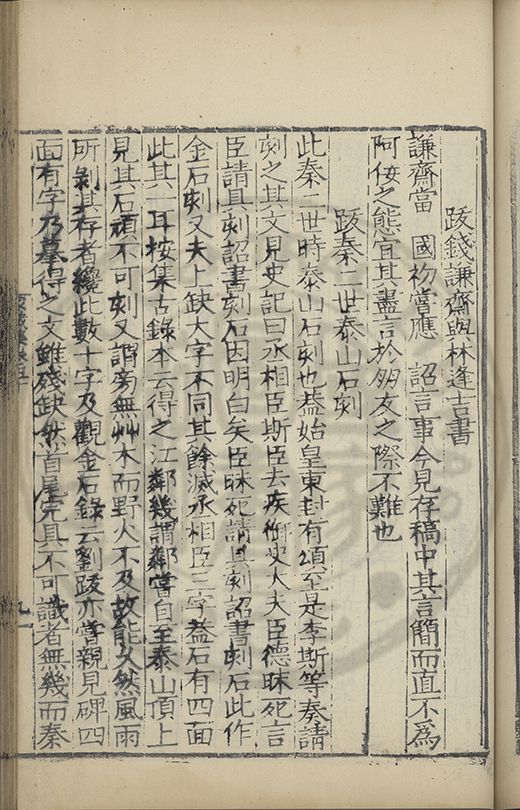 跋錢謙齋與林逢吉書
謙齋當　國初嘗應　詔言事今見存稿中其言簡而直不爲
阿佞之態宜其盡言於朋友之際不難也
跋秦二世泰山石刻
此秦二世時泰山石刻也蓋始皇東封有頌至是李斯等奏請
刻之其文見史記曰丞相臣斯臣去疾御史大夫臣德昧死言
臣請具刻詔書刻石因明白矣臣昧死請具刻詔書刻石此作
金石刻又夫上缺大字不同其餘滅丞相臣三字蓋石有四面
此其一耳按集古錄本云得之江鄰幾謂鄰幾嘗自至泰山頂上
見其石頑不可刻又謂旁無艸木而野火不及故能久然風雨
所剥其存者纔此數十字及觀金石錄云劉跂亦嘗親見碑四
面有字乃摹得之文雖殘缺然首尾完具不可識者無幾而秦